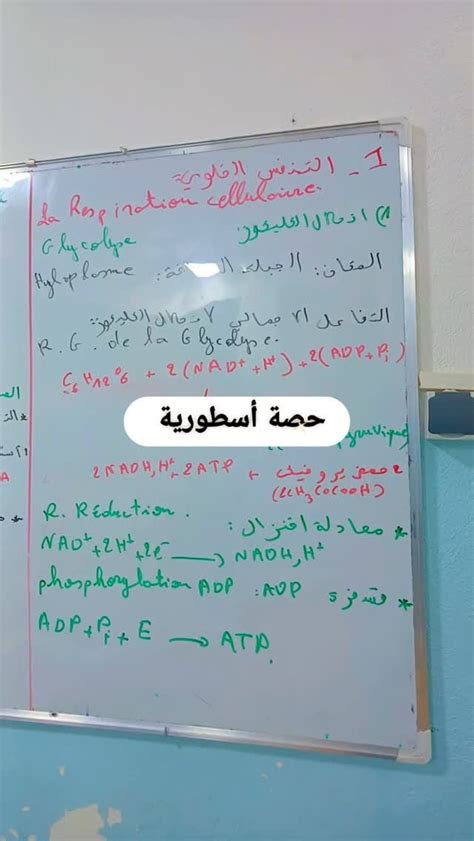 I - التنفس الخلوي:
La Respiration cellulaire.
1) انحلال الغليكوز:
Glycolyse
المكان: الجبلة
Hyaloplasme
التفاعل الإجمالي لانحلال الغليكوز:
R. G. de la Glycolyse.
C6H12O6 + 2(NAD+ + H+) + 2(ADP+Pi)
حصة أسطورية
pyruvique)
2NADH,H+ + 2ATP + 2 حمض بيروفيك
(2CH3COCOOH)
R. Réduction.
* معادلة اختزال:
NAD+ + 2H+ + 2e- → NADH,H+
phosphorylation ADP : ADP فسفرة *
ADP + Pi + E → ATP.